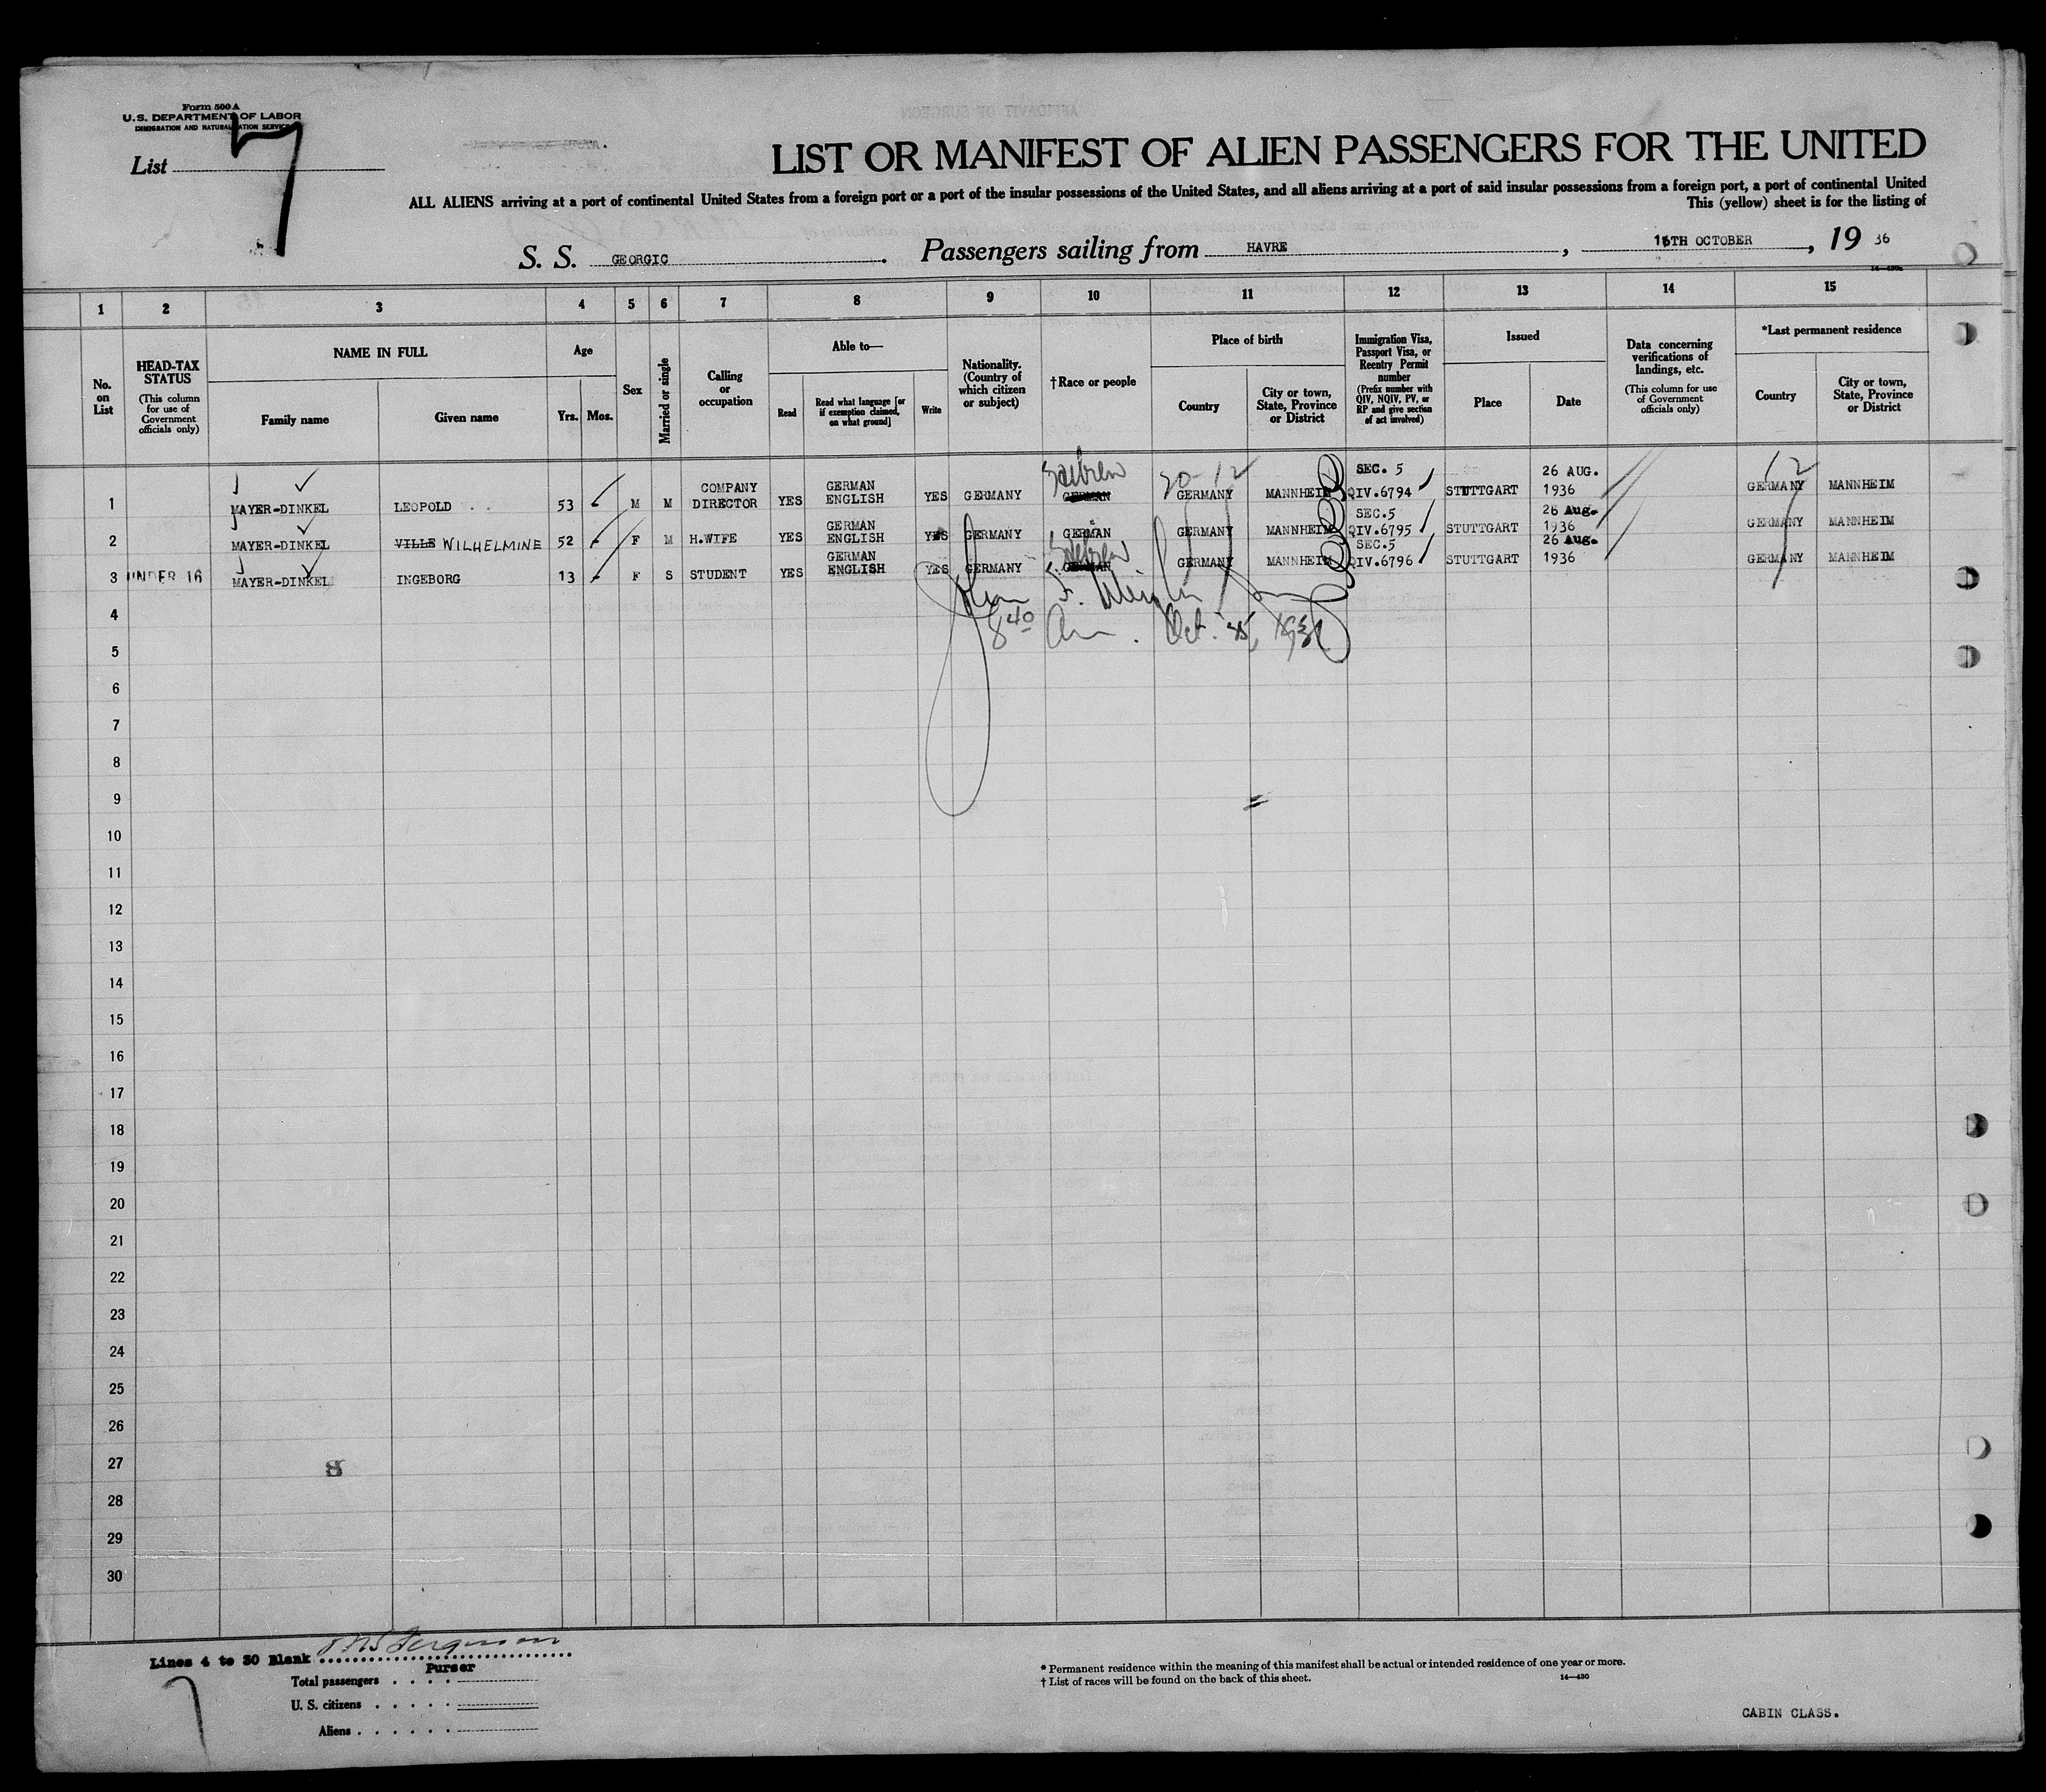 Form 500 A
U.S. DEPARTMENT OF LABOR
IMMIGRATION AND NATURALIZATION SERVICE
List 7
LIST OR MANIFEST OF ALIEN PASSENGERS FOR THE UNITED
ALL ALIENS arriving at a port of continental United States from a foreign port or a port of the insular possessions of the United States, and all aliens arriving at a port of said insular possessions from a foreign port, a port of continental United
This (yellow) sheet is for the listing of
S. S. GEORGIC. Passengers sailing from HAVRE, 16TH OCTOBER, 19 36
1 2 3 4 5 6 7 8 9 10 11 12 13 14 15
No. on List
HEAD-TAX STATUS (This column for use of Government officials only)
NAME IN FULL
Family name
Given name
Age
Yrs. Mos.
Sex
Married or single
Calling or occupation
Able to—
Read
Read what language [or if exemption claimed, on what ground]
Write
Nationality. (Country of which citizen or subject)
†Race or people
Place of birth
Country
City or town, State, Province or District
Immigration Visa, Passport Visa, or Reentry Permit number (Prefix number with QIV, NQIV, PV, or RP and give section of act involved)
Issued
Place
Date
Data concerning verifications of landings, etc. (This column for use of Government officials only)
*Last permanent residence
Country
City or town, State, Province or District
1 MAYER-DINKEL LEOPOLD 53 M M COMPANY DIRECTOR YES GERMAN ENGLISH YES GERMANY GERMAN Hebrew GERMANY MANNHEIM SEC. 5 QIV.6794 STUTTGART 26 AUG. 1936 GERMANY MANNHEIM
2 MAYER-DINKEL VILLE WILHELMINE 52 F M H.WIFE YES GERMAN ENGLISH YES GERMANY GERMAN GERMANY MANNHEIM SEC.5 QIV.6795 STUTTGART 26 Aug. 1936 GERMANY MANNHEIM
3 UNDER 16 MAYER-DINKEL INGEBORG 13 F S STUDENT YES GERMAN ENGLISH YES GERMANY GERMAN Hebrew GERMANY MANNHEIM SEC.5 QIV.6796 STUTTGART 26 Aug. 1936 GERMANY MANNHEIM
4
8 40 Am. Oct. 25, 1936
5
6
7
8
9
10
11
12
13
14
15
16
17
18
19
20
21
22
23
24
25
26
27
28
29
30
Lines 4 to 30 Blank Ferguson
Purser
Total passengers
U. S. citizens
Aliens
* Permanent residence within the meaning of this manifest shall be actual or intended residence of one year or more.
† List of races will be found on the back of this sheet.
14—430
CABIN CLASS.